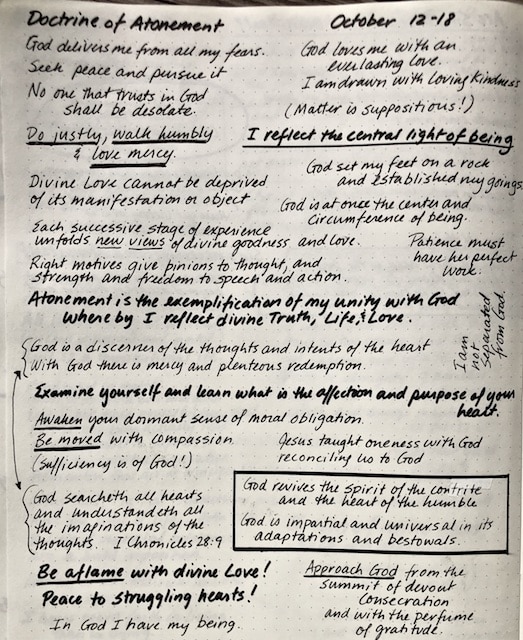 Doctrine of Atonement
October 12-18
God delivers me from all my fears.
Seek peace and pursue it
No one that trusts in God
shall be desolate.
God loves me with an
everlasting love.
I am drawn with Loving Kindness
(Matter is suppositious!)
Do justly, walk humbly
& love mercy.
I reflect the central light of being
God set my feet on a rock
and established my goings
Divine Love cannot be deprived
of its manifestation or object
God is at once the center and
circumference of being.
Each successive stage of experience
unfolds new views of divine goodness and love.
Patience must
have her perfect
work.
Right motives give pinions to thought, and
strength and freedom to speech and action.
Atonement is the exemplification of my unity with God
where by I reflect divine Truth, Life, & Love.
I am
not
separated
from God.
God is a discerner of the thoughts and intents of the heart
With God there is mercy and plenteous redemption.
Examine yourself and learn what is the affection and purpose of your
heart.
Awaken your dormant sense of moral obligation.
Be moved with compassion
(Sufficiency is of God!)
Jesus taught oneness with God
reconciling us to God
God searcheth all hearts
and understandeth all
the imaginations of the
thoughts. I Chronicles 28:9
God revives the spirit of the contrite
and the heart of the humble
God is impartial and universal in its
adaptations and bestowals.
Be aflame with divine Love!
Peace to struggling hearts!
In God I have my being.
Approach God from the
summit of devout
consecration
and with the perfume
of gratitude.